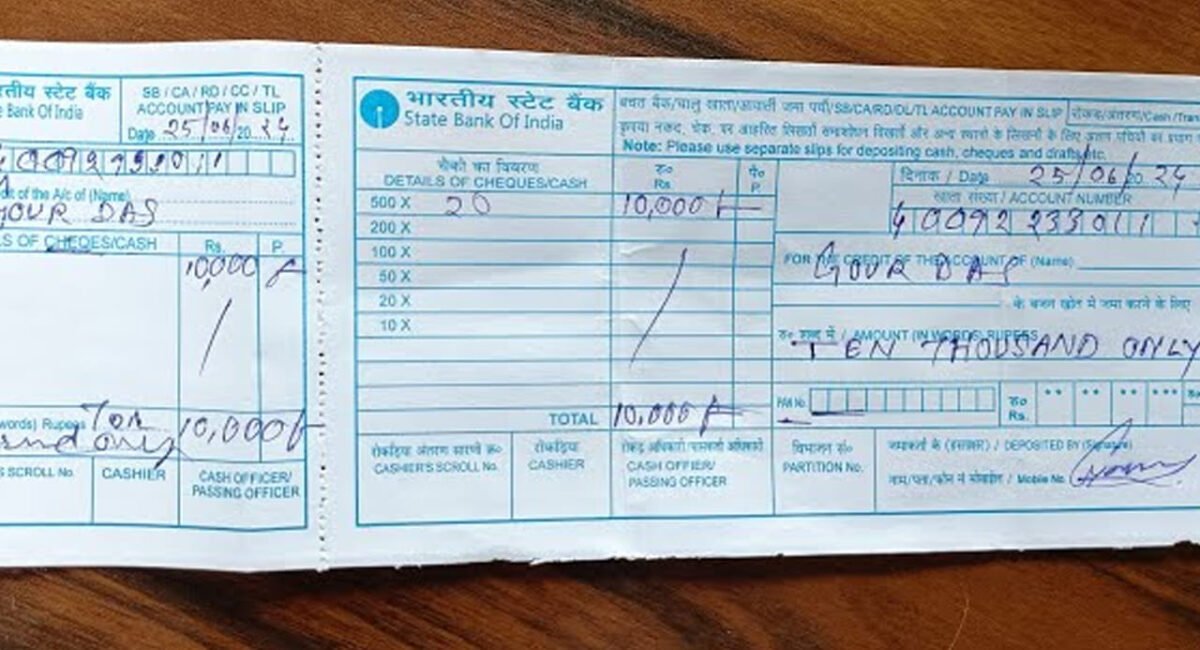 रतीय स्टेट बैंक
e Bank Of India
SB / CA / RD / CC / TL
ACCOUNT PAY IN SLIP
Date 25/06/2024
it of the A/c of (Name)
GOUR DAS
LS OF CHEQES/CASH Rs. P.
10,000
words) Rupees Ten
only 10,000
S SCROLL No. CASHIER CASH OFFICER/
PASSING OFFICER
भारतीय स्टेट बैंक
State Bank Of India
ACCOUNT PAY IN SLIP
Note: Please use separate slips for depositing cash, cheques and drafts, etc.
चेकों का विवरण रु० पै०
DETAILS OF CHEQUES/CASH Rs. P.
500 X 20 10,000
200 X
100 X
50 X
20 X
10 X
TOTAL 10,000
रोकड़िया
CASHIER'S SCROLL No. CASHIER CASH OFFIER/
PASSING OFFICER
दिनांक / Date 25/06/2024
खाता संख्या / ACCOUNT NUMBER
40092233011
FOR THE CREDIT OF THE ACCOUNT OF (Name)
GOUR DAS
के बचत खाते में जमा करने के लिए
रु० शब्द में / AMOUNT (IN WORDS) RUPEES
TEN THOUSAND ONLY
PAN No. रु०
Rs.
** ** ** ***
विभाजन सं०
PARTITION No.
जमाकर्ता के (हस्ताक्षर) / DEPOSITED BY (Signature)
/ Mobile No.